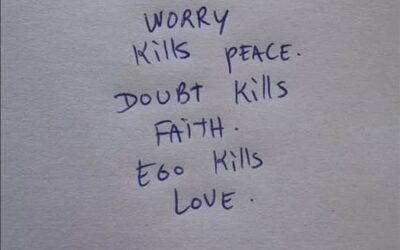 WORRY
Kills PEACE.
DOUBT Kills
FAITH.
EGO Kills
LOVE.